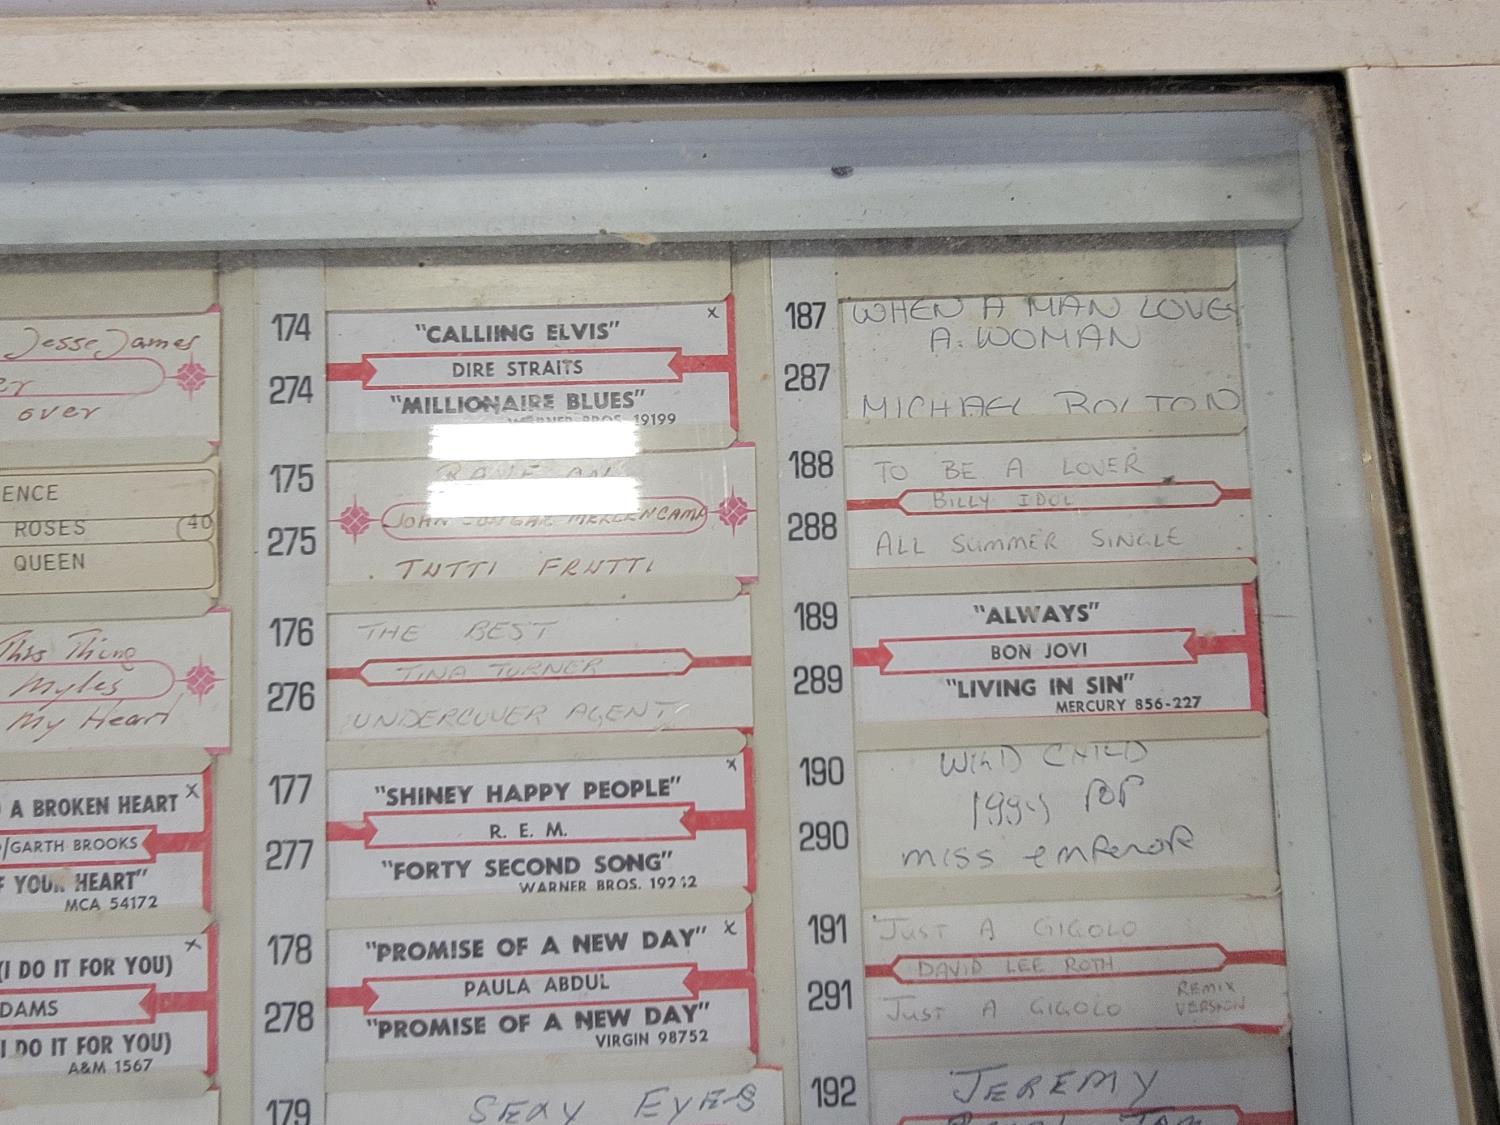 Jesse James
er
over
ENCE
ROSES (40
QUEEN
This Thing
Myles
My Heart
A BROKEN HEART x
/GARTH BROOKS
F YOUR HEART"
MCA 54172
x
(I DO IT FOR YOU)
DAMS
I DO IT FOR YOU)
A&M 1567
174
274
x
"CALLIING ELVIS"
DIRE STRAITS
"MILLIONAIRE BLUES"
WARNER BROS. 19199
175
275
JOHN COUGAR MELLENCAMP
TUTTI FRUTTI
176
276
THE BEST
TINA TURNER
UNDERCOVER AGENT
177
277
x
"SHINEY HAPPY PEOPLE"
R. E. M.
"FORTY SECOND SONG"
WARNER BROS. 19242
178
278
"PROMISE OF A NEW DAY" x
PAULA ABDUL
"PROMISE OF A NEW DAY"
VIRGIN 98752
179
SEXY EYES
187
287
WHEN A MAN LOVES
A WOMAN
MICHAEL BOLTON
188
288
TO BE A LOVER
BILLY IDOL
ALL SUMMER SINGLE
189
289
"ALWAYS"
BON JOVI
"LIVING IN SIN"
MERCURY 856-227
190
290
WILD CHILD
POP
miss emperor
191
291
JUST A GIGOLO
DAVID LEE ROTH
JUST A GIGOLO REMIX
VERSION
192
JEREMY
PEARL JAM